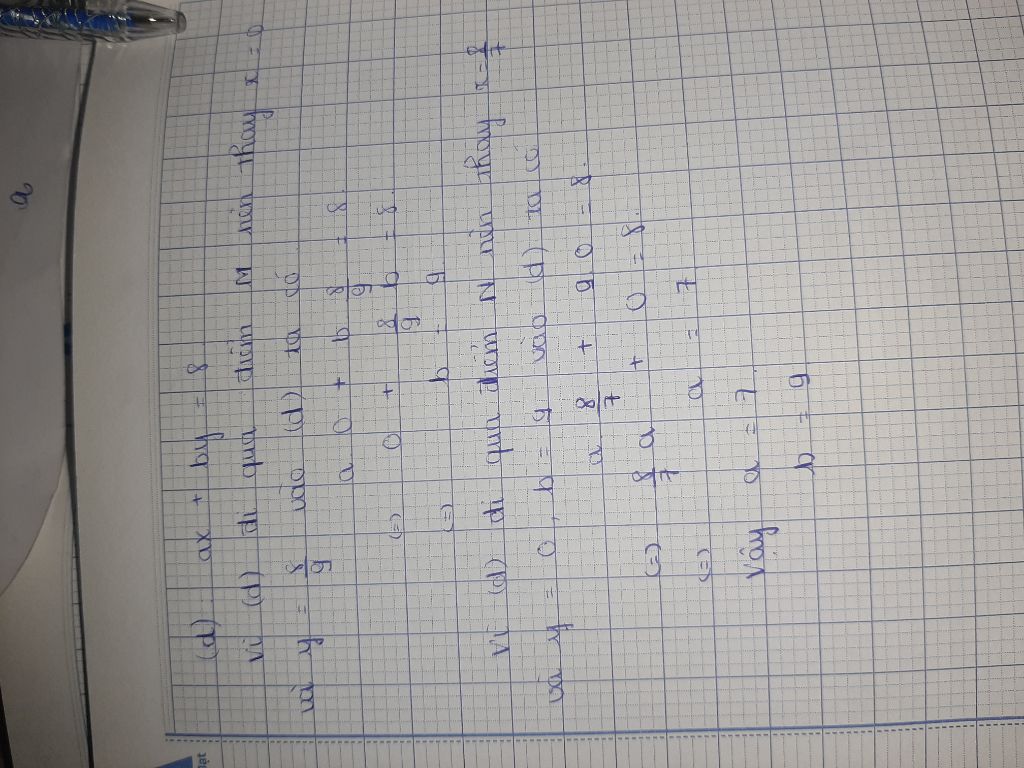 (d) ax + by = 8
Vì (d) đi qua điểm M nên thay x = 0
và y = 8/9 vào (d) ta có
a 0 + b 8/9 = 8.
(=) 0 + 8/9 b = 8.
(=) b = 9
Vì (d) đi qua điểm N nên thay x = 8/7
và y = 0, b = 9 vào (d) ta có
a 8/7 + 9 0 = 8.
(=) 8/7 a + 0 = 8.
(=) a = 7
Vậy a = 7.
b = 9